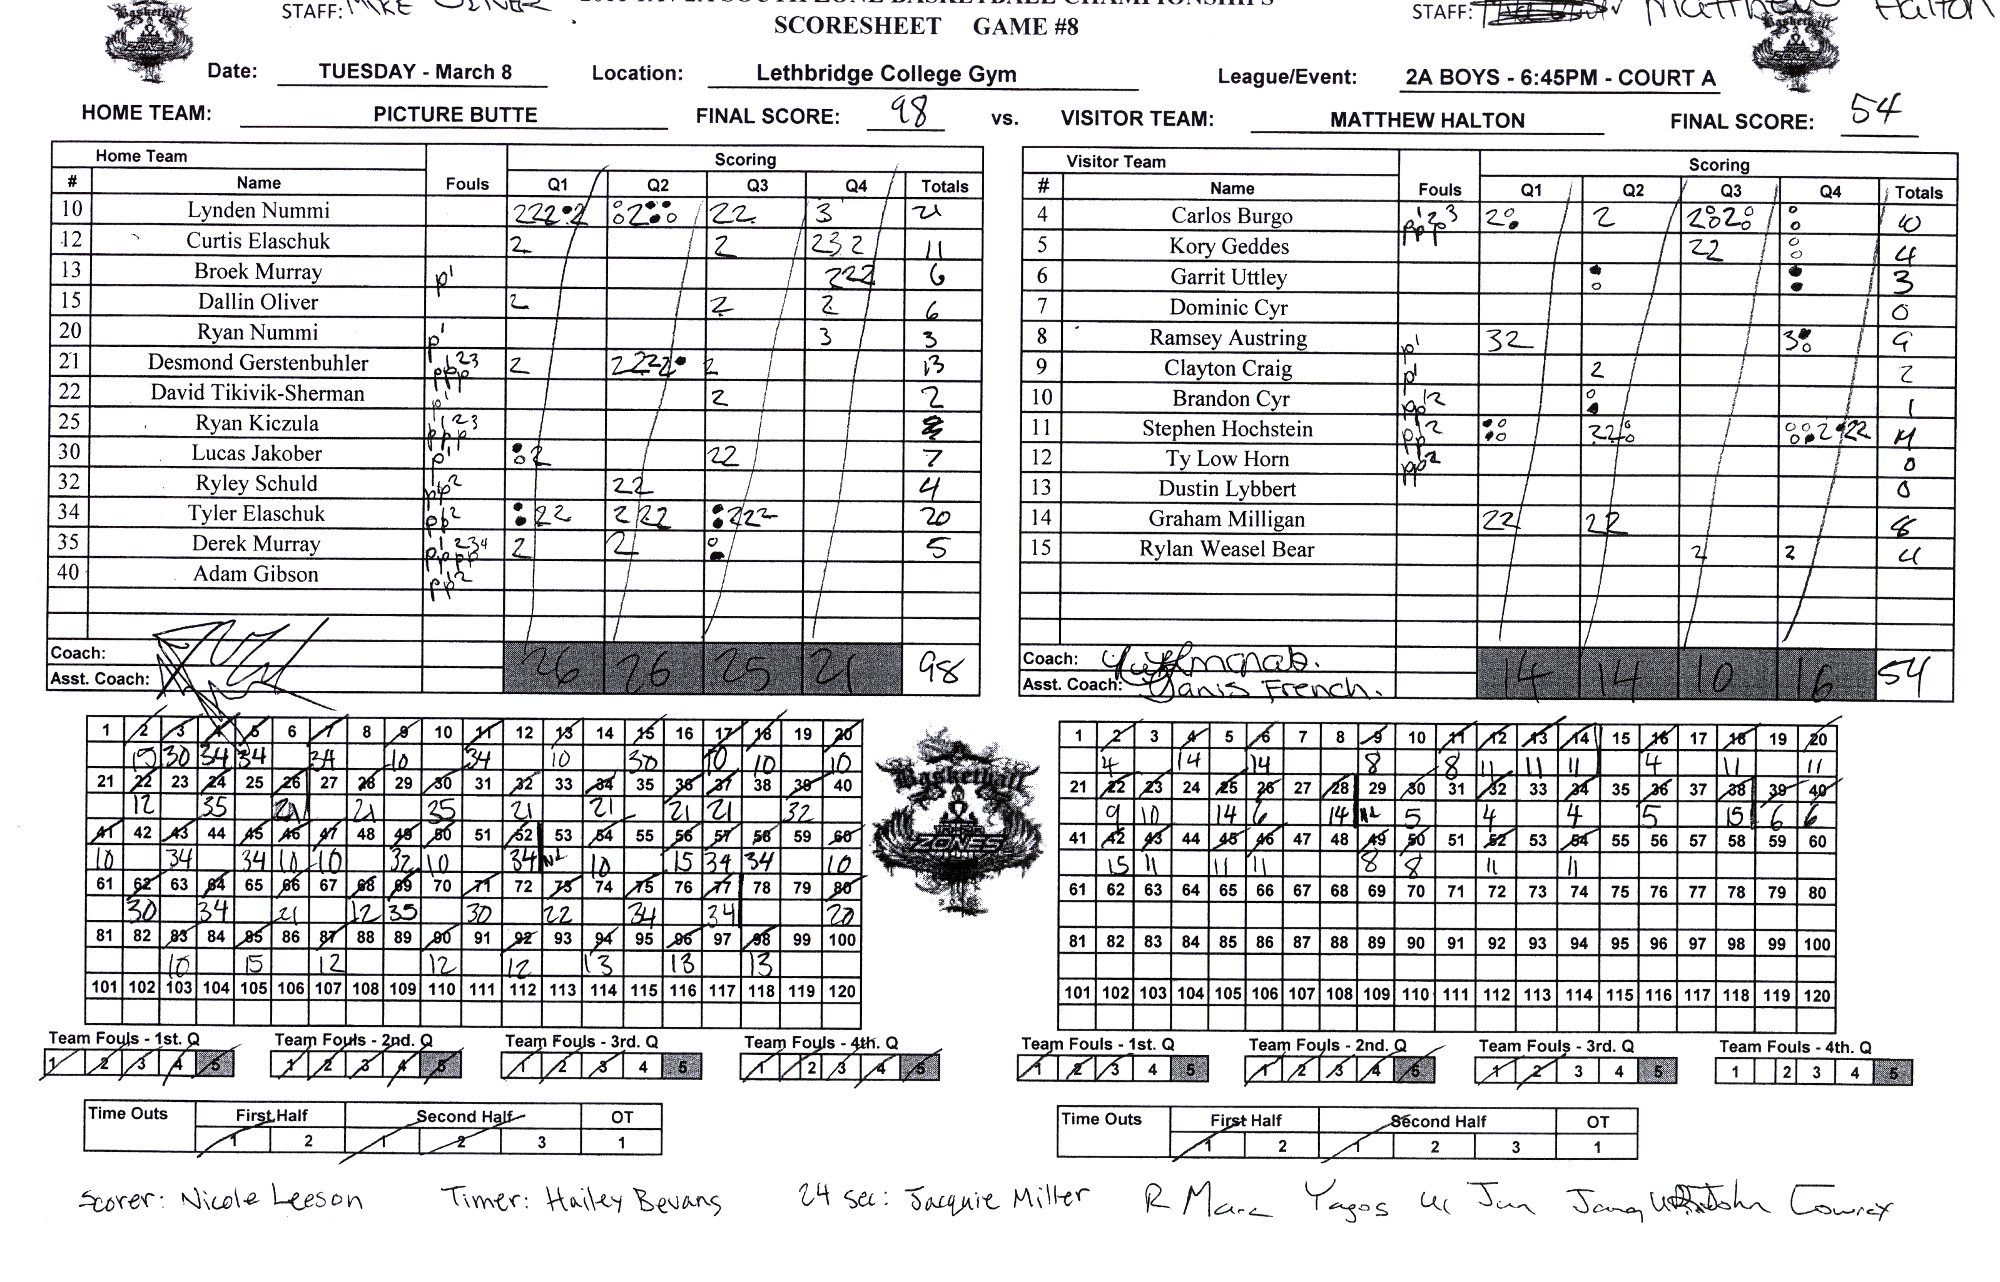 STAFF: MIKE OLIVER
STAFF: Matthew Halton
SOUTH ZONE BASKETBALL CHAMPIONSHIPS
SCORESHEET GAME #8
Date: TUESDAY - March 8 Location: Lethbridge College Gym League/Event: 2A BOYS - 6:45PM - COURT A
HOME TEAM: PICTURE BUTTE FINAL SCORE: 98 vs. VISITOR TEAM: MATTHEW HALTON FINAL SCORE: 54
Home Team Scoring
# Name Fouls Q1 Q2 Q3 Q4 Totals
10 Lynden Nummi 222 2 2 22 3 21
12 Curtis Elaschuk 2 2 232 11
13 Broek Murray p1 222 6
15 Dallin Oliver 2 2 2 6
20 Ryan Nummi p1 3 3
21 Desmond Gerstenbuhler ppp 123 2 2222 2 13
22 David Tikivik-Sherman p1 2 2
25 Ryan Kiczula ppp 123
30 Lucas Jakober p1 2 22 7
32 Ryley Schuld pp 2 22 4
34 Tyler Elaschuk pp 2 22 222 222 20
35 Derek Murray pppp 1234 2 2 5
40 Adam Gibson pp 2
Coach:
Asst. Coach:
26 26 25 21 98
Visitor Team Scoring
# Name Fouls Q1 Q2 Q3 Q4 Totals
4 Carlos Burgo ppp 123 2 2 2 2 10
5 Kory Geddes 22 4
6 Garrit Uttley 3
7 Dominic Cyr 0
8 Ramsey Austring p1 32 3 9
9 Clayton Craig p1 2 2
10 Brandon Cyr pp 12 1
11 Stephen Hochstein pp 12 22 2 22 11
12 Ty Low Horn pp 2 0
13 Dustin Lybbert 0
14 Graham Milligan 22 22 8
15 Rylan Weasel Bear 2 2 4
Coach:
Asst. Coach: Janis French.
14 14 10 16 54
1 2 3 4 5 6 7 8 9 10 11 12 13 14 15 16 17 18 19 20
15 30 34 34 34 10 34 10 30 10 10 10
21 22 23 24 25 26 27 28 29 30 31 32 33 34 35 36 37 38 39 40
12 35 21 21 35 21 21 21 21 32
41 42 43 44 45 46 47 48 49 50 51 52 53 54 55 56 57 58 59 60
10 34 34 10 10 32 10 34 10 15 34 34 10
61 62 63 64 65 66 67 68 69 70 71 72 73 74 75 76 77 78 79 80
30 34 21 12 35 30 22 34 34 20
81 82 83 84 85 86 87 88 89 90 91 92 93 94 95 96 97 98 99 100
10 15 12 12 12 13 13 13
101 102 103 104 105 106 107 108 109 110 111 112 113 114 115 116 117 118 119 120
1 2 3 4 5 6 7 8 9 10 11 12 13 14 15 16 17 18 19 20
4 14 14 8 8 11 11 11 4 11 11
21 22 23 24 25 26 27 28 29 30 31 32 33 34 35 36 37 38 39 40
9 10 14 6 14 5 4 4 5 15 6 6
41 42 43 44 45 46 47 48 49 50 51 52 53 54 55 56 57 58 59 60
15 11 11 11 8 8 11 11
61 62 63 64 65 66 67 68 69 70 71 72 73 74 75 76 77 78 79 80
81 82 83 84 85 86 87 88 89 90 91 92 93 94 95 96 97 98 99 100
101 102 103 104 105 106 107 108 109 110 111 112 113 114 115 116 117 118 119 120
Basketball
ZONES
Team Fouls - 1st. Q Team Fouls - 2nd. Q Team Fouls - 3rd. Q Team Fouls - 4th. Q
1 2 3 4 5 1 2 3 4 5 1 2 3 4 5 1 2 3 4 5
Team Fouls - 1st. Q Team Fouls - 2nd. Q Team Fouls - 3rd. Q Team Fouls - 4th. Q
1 2 3 4 5 1 2 3 4 5 1 2 3 4 5 1 2 3 4 5
Time Outs First Half Second Half OT
1 2 1 2 3 1
Time Outs First Half Second Half OT
1 2 1 2 3 1
Scorer: Nicole Leeson Timer: Hailey Bevans 24 sec: Jacquie Miller R Marc Yagos John